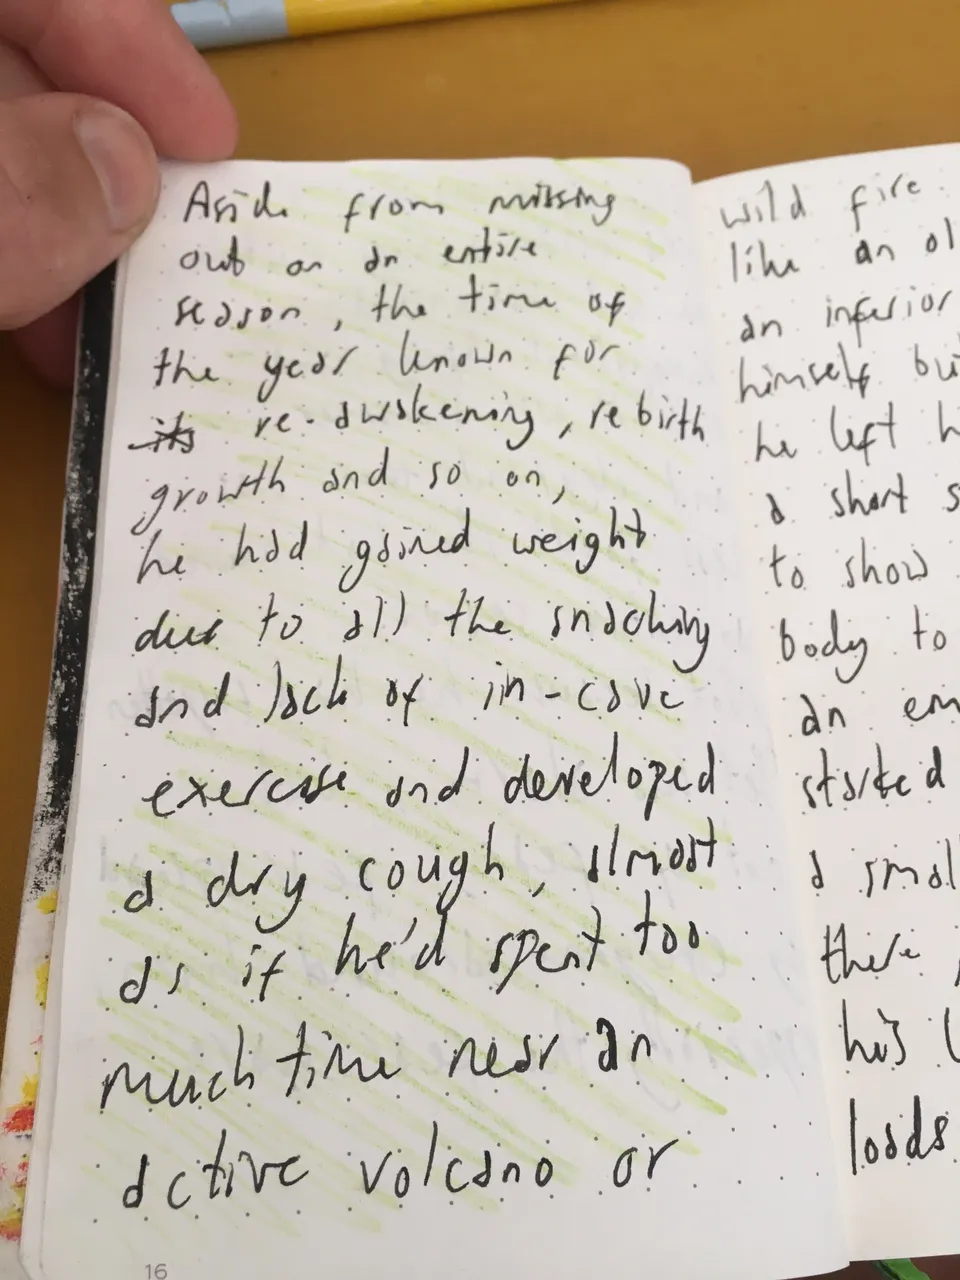 Aside from missing
out on an entire
season, the time of
the year known for
its re-awakening, rebirth
growth and so on,
he had gained weight
due to all the snacking
and lack of in-cave
exercise and developed
a dry cough, almost
as if he'd spent too
much time near an
active volcano or
16
wild fire.
like an ol
an inferior
himself bu
he left h
a short s
to show
body to
an em
started
a smal
there
his
loads